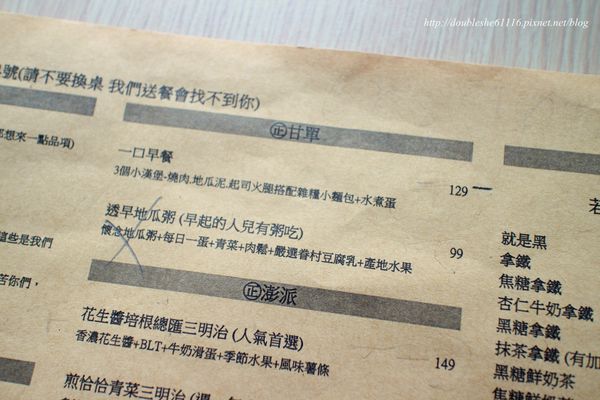 http://doubleshe61116.pixnet.net/blog
號(請不要換桌 我們送餐會找不到你)
都想來一點品項)
這些是我們
苦你們，
㊣甘單
一口早餐 129
3個小漢堡-燒肉.地瓜泥.起司火腿搭配雜糧小麵包+水煮蛋
透早地瓜粥 (早起的人兒有粥吃)
懷念地瓜粥+每日一蛋+青菜+肉鬆+嚴選眷村豆腐乳+產地水果 99
㊣澎派
花生醬培根總匯三明治 (人氣首選)
香濃花生醬+BLT+牛奶滑蛋+季節水果+風味薯條 149
煎恰恰青菜三明治
若
就是黑
拿鐵
焦糖拿鐵
杏仁牛奶拿鐵
黑糖拿鐵
抹茶拿鐵 (有加
黑糖鮮奶茶